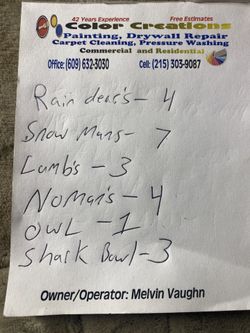 42 Years Experience Free Estimates
Color Creations
Painting, Drywall Repair
Carpet Cleaning, Pressure Washing
Commercial and Residential
Office: (609) 632-3030 Cell: (215) 303-9087
Rain dears - 4
Snow Mans - 7
Lamb's - 3
NoMan's - 4
OWL - 1
Shark Bowl - 3
Owner/Operator: Melvin Vaughn